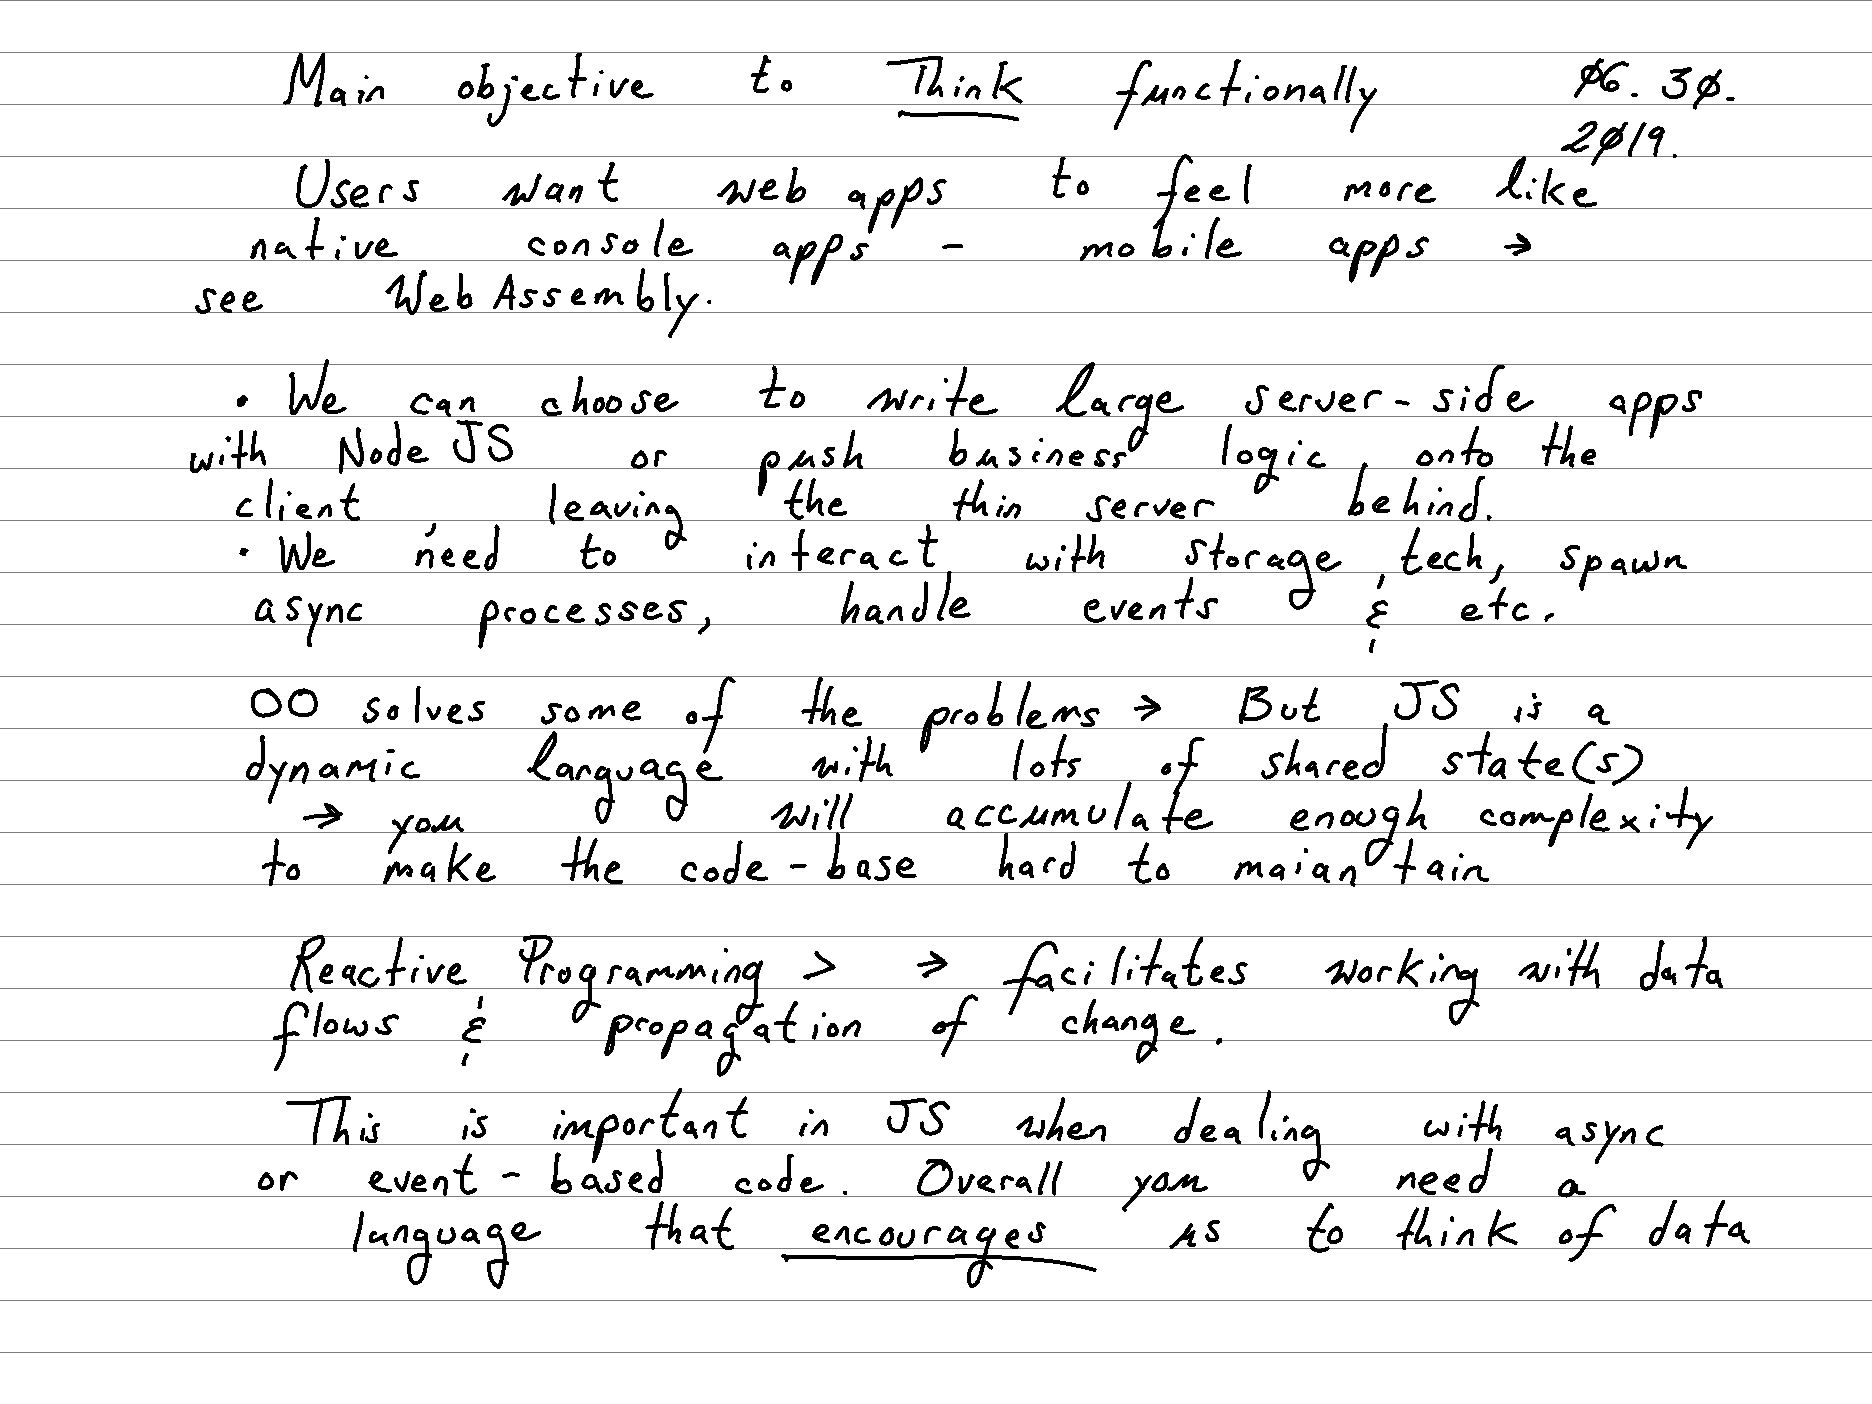 Main objective to Think functionally Ø6. 3Ø.
2Ø19.
Users want web apps to feel more like
native console apps - mobile apps →
see WebAssembly.
• We can choose to write large server-side apps
with NodeJS or push business logic onto the
client, leaving the thin server behind.
• We need to interact with storage tech, spawn
async processes, handle events & etc.
OO solves some of the problems → But JS is a
dynamic language with lots of shared state(s)
→ you will accumulate enough complexity
to make the code-base hard to maiantain
Reactive Programming > → facilitates working with data
flows & propagation of change.
This is important in JS when dealing with async
or event-based code. Overall you need a
language that encourages us to think of data